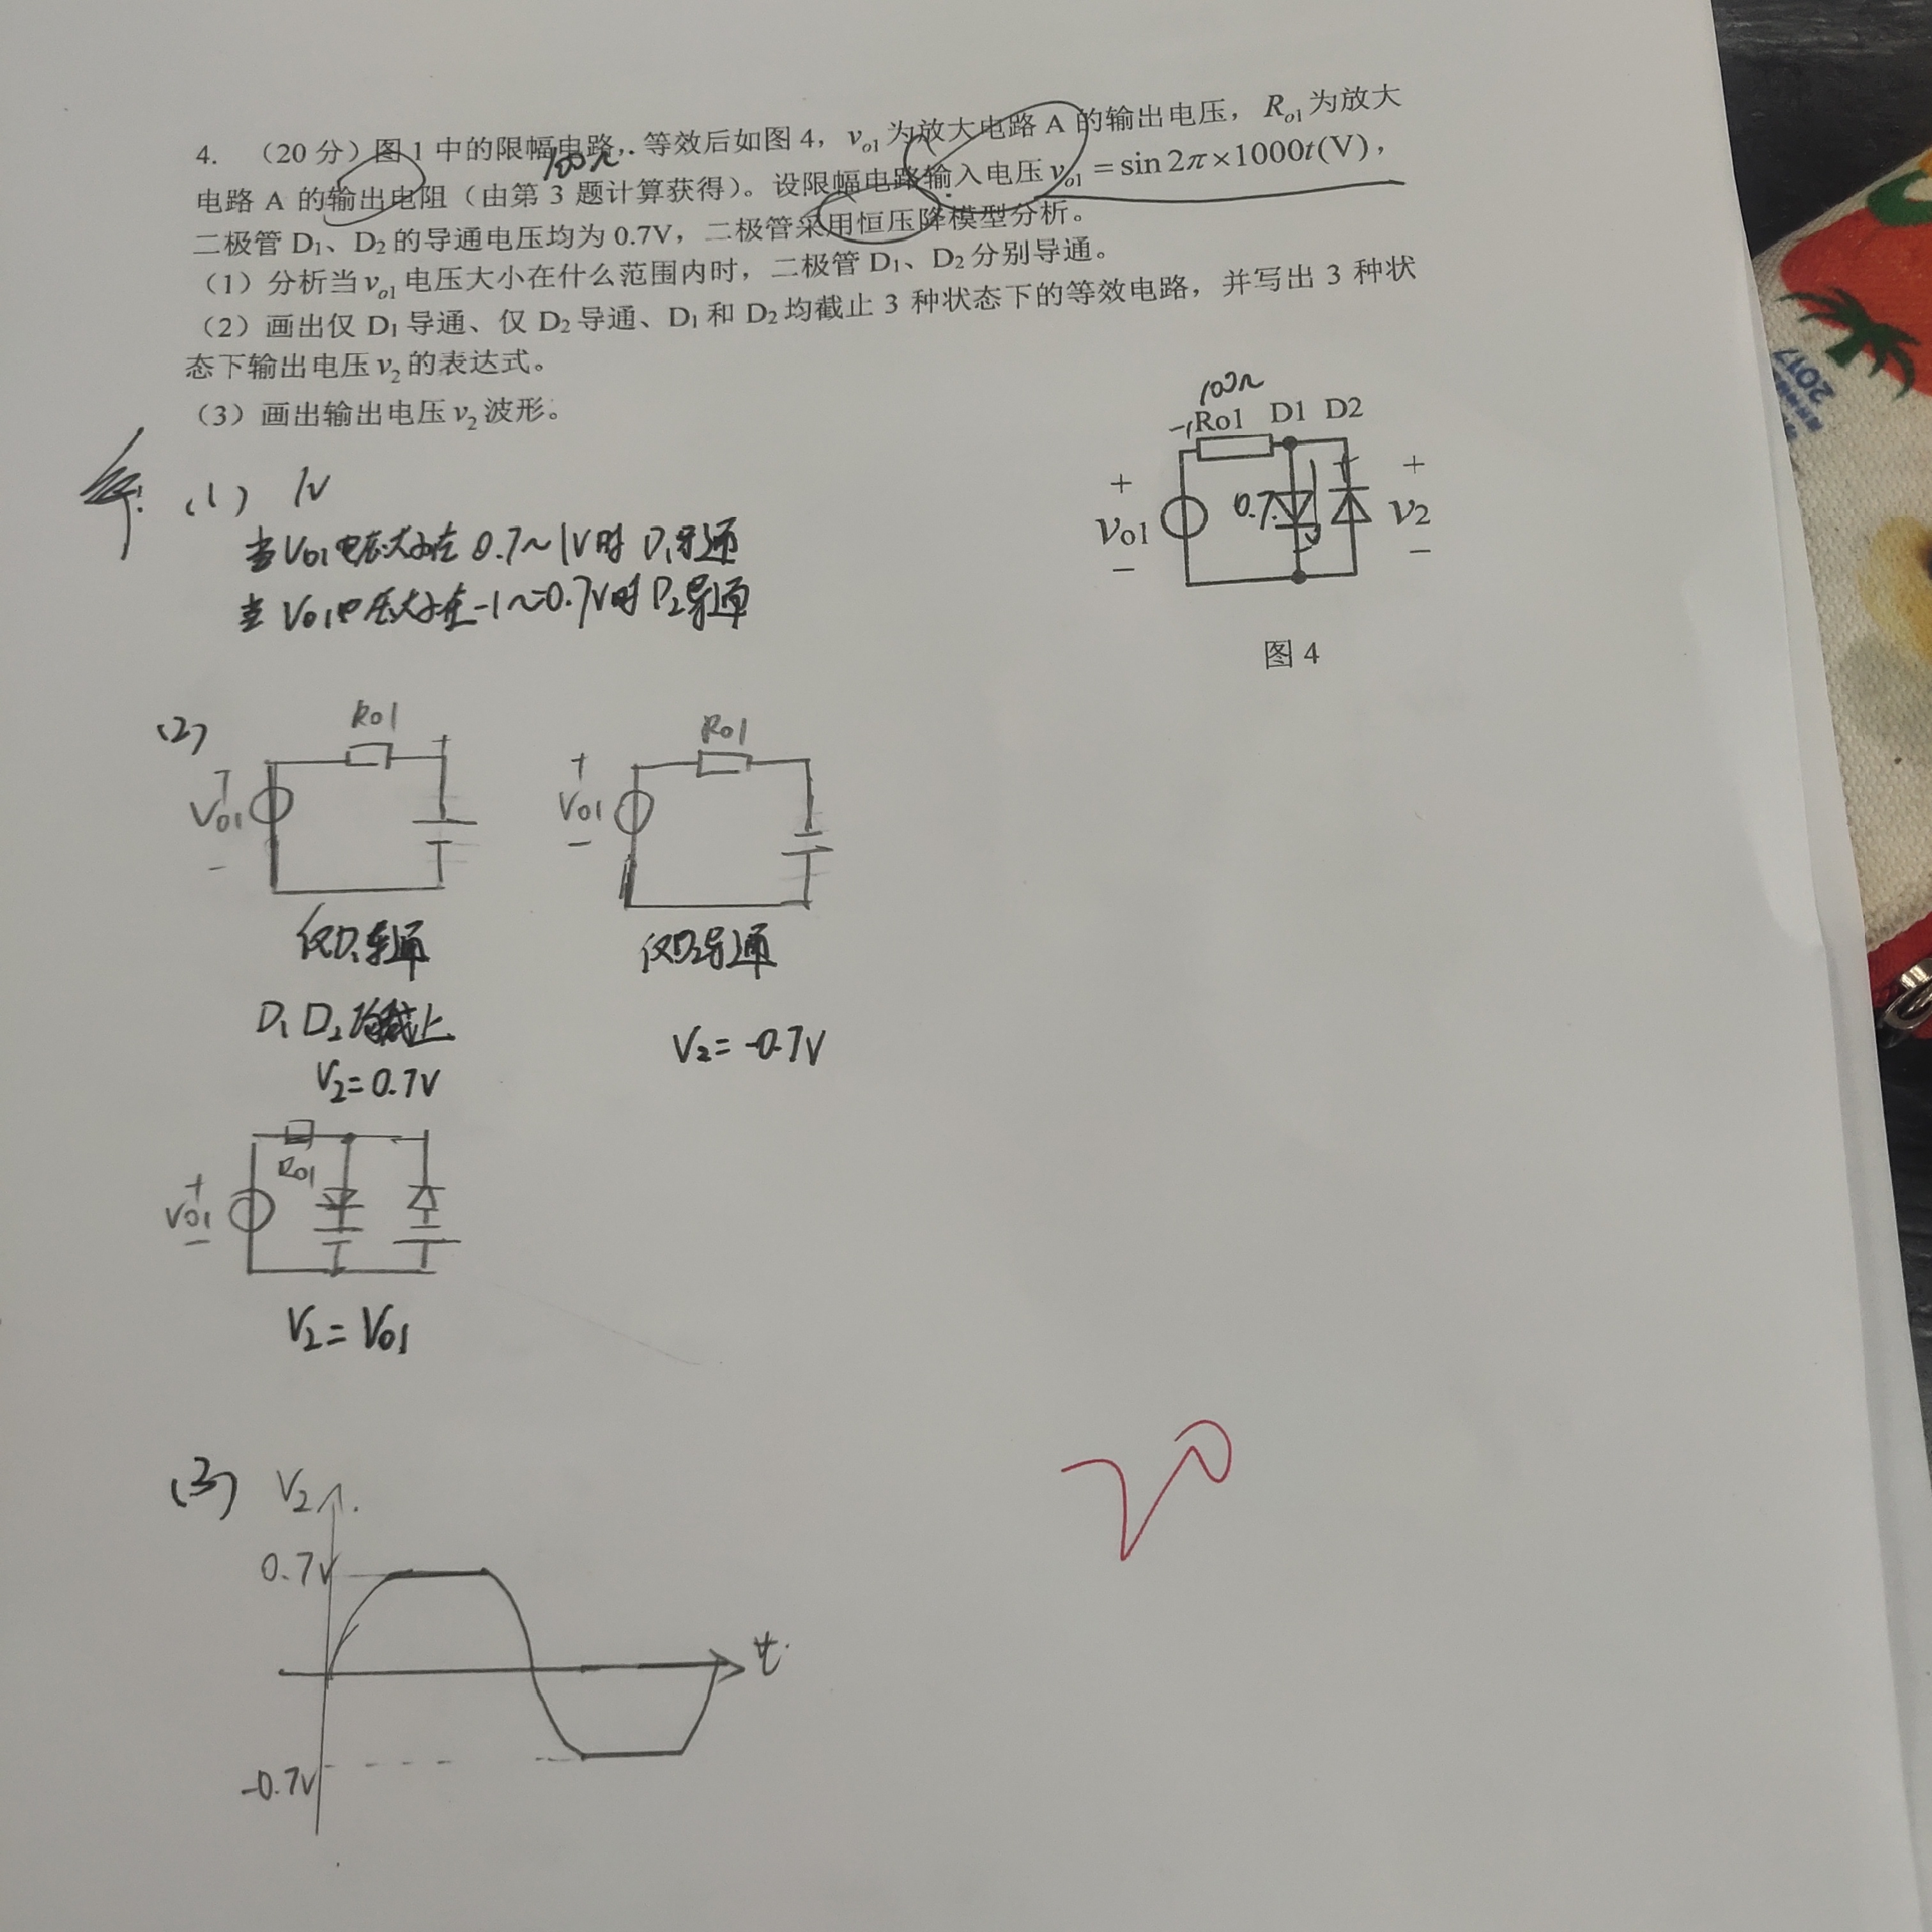 4. （20 分）图 1 中的限幅电路，等效后如图 4，v_{o1} 为放大电路 A 的输出电压，R_{o1} 为放大
100Ω
电路 A 的输出电阻（由第 3 题计算获得）。设限幅电路输入电压 v_{o1} = sin 2π×1000t(V)，
二极管 D₁、D₂ 的导通电压均为 0.7V，二极管采用恒压降模型分析。
（1）分析当 v_{o1} 电压大小在什么范围内时，二极管 D₁、D₂ 分别导通。
（2）画出仅 D₁ 导通、仅 D₂ 导通、D₁ 和 D₂ 均截止 3 种状态下的等效电路，并写出 3 种状
态下输出电压 v₂ 的表达式。
（3）画出输出电压 v₂ 波形。
100Ω
Ro1 D1 D2
+ +
Vo1 0.7 V2
− −
图 4
(1) 1V
当Vo1电压大小在 0.7～1V时 D₁导通
当Vo1电压大小在 -1～-0.7V时 D₂导通
(2) Ro1 Ro1
+ +
Vo1 Vo1
− −
仅D₁导通 仅D₂导通
D₁ D₂ 均截止
V₂=0.7V V₂=-0.7V
Ro1
+
Vo1
−
V₂=Vo1
(3) V₂
0.7V
t
-0.7V
20
2017